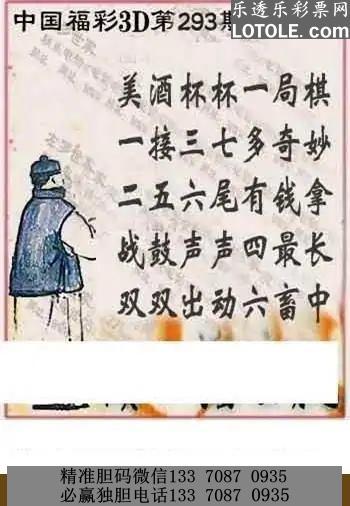 乐透乐彩票网
LOTOLE.COM
中国福彩3D第293期
美酒杯杯一局棋
一接三七多奇妙
二五六尾有钱拿
战鼓声声四最长
双双出动六畜中
精准胆码微信133 7087 0935
必赢独胆电话133 7087 0935